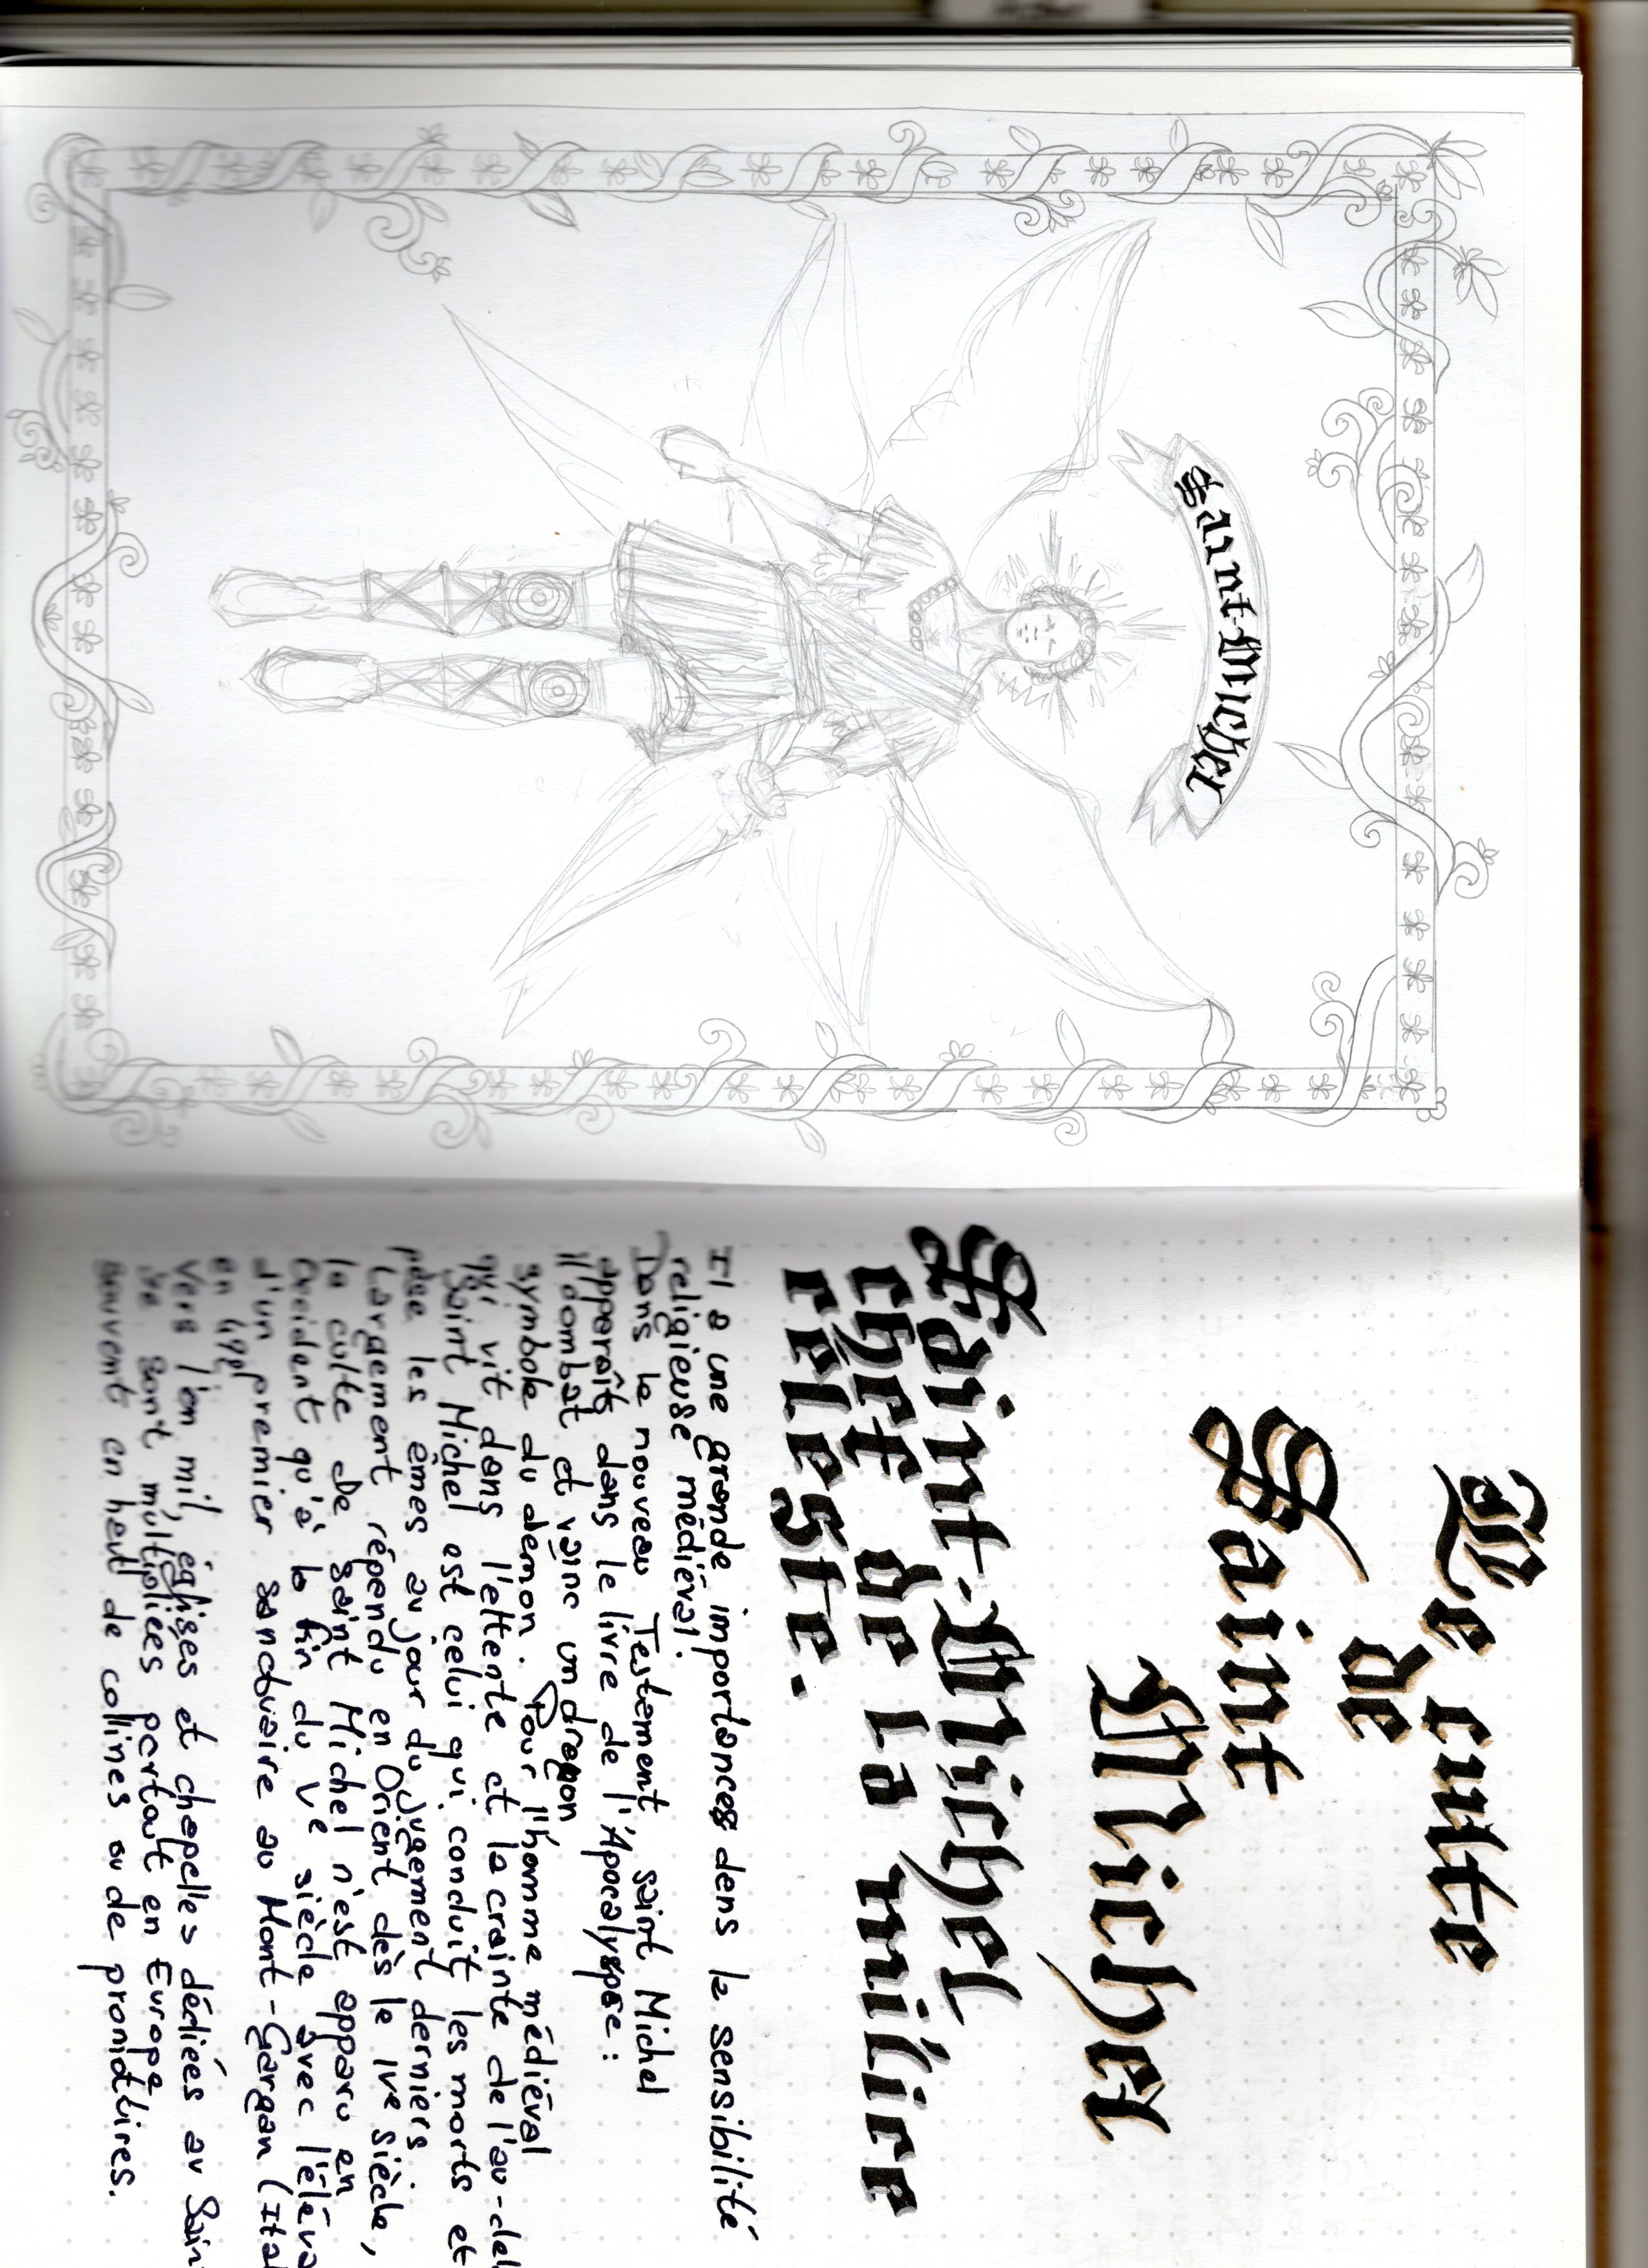 Saint-Michel
Le culte
de
Saint
Michel
Saint-Michel
chef de la milice
céleste.
Il a une grande importances dans la sensibilité
religieuse médiéval.
Dans le nouveau Testament saint Michel
apparaît dans le livre de l'Apocalypse :
Il combat et vainc un dragon
symbole du demon. Pour l'homme médiéval
qui vit dans l'attente et la crainte de l'au-del
Saint Michel est celui qui conduit les morts et
pèse les âmes au jour du Jugement derniers.
Largement répandu en Orient dès le IVe siècle,
le culte De saint Michel n'est apparu en
Occident qu'à la fin du Ve siècle avec l'éléva
d'un premier sanctuaire au Mont-Gargan (Ita
en
Vers l'an mil, églises et chapelles dédiées au Sain
se sont multipliées partout en Europe
souvent en haut de collines ou de promotoires.